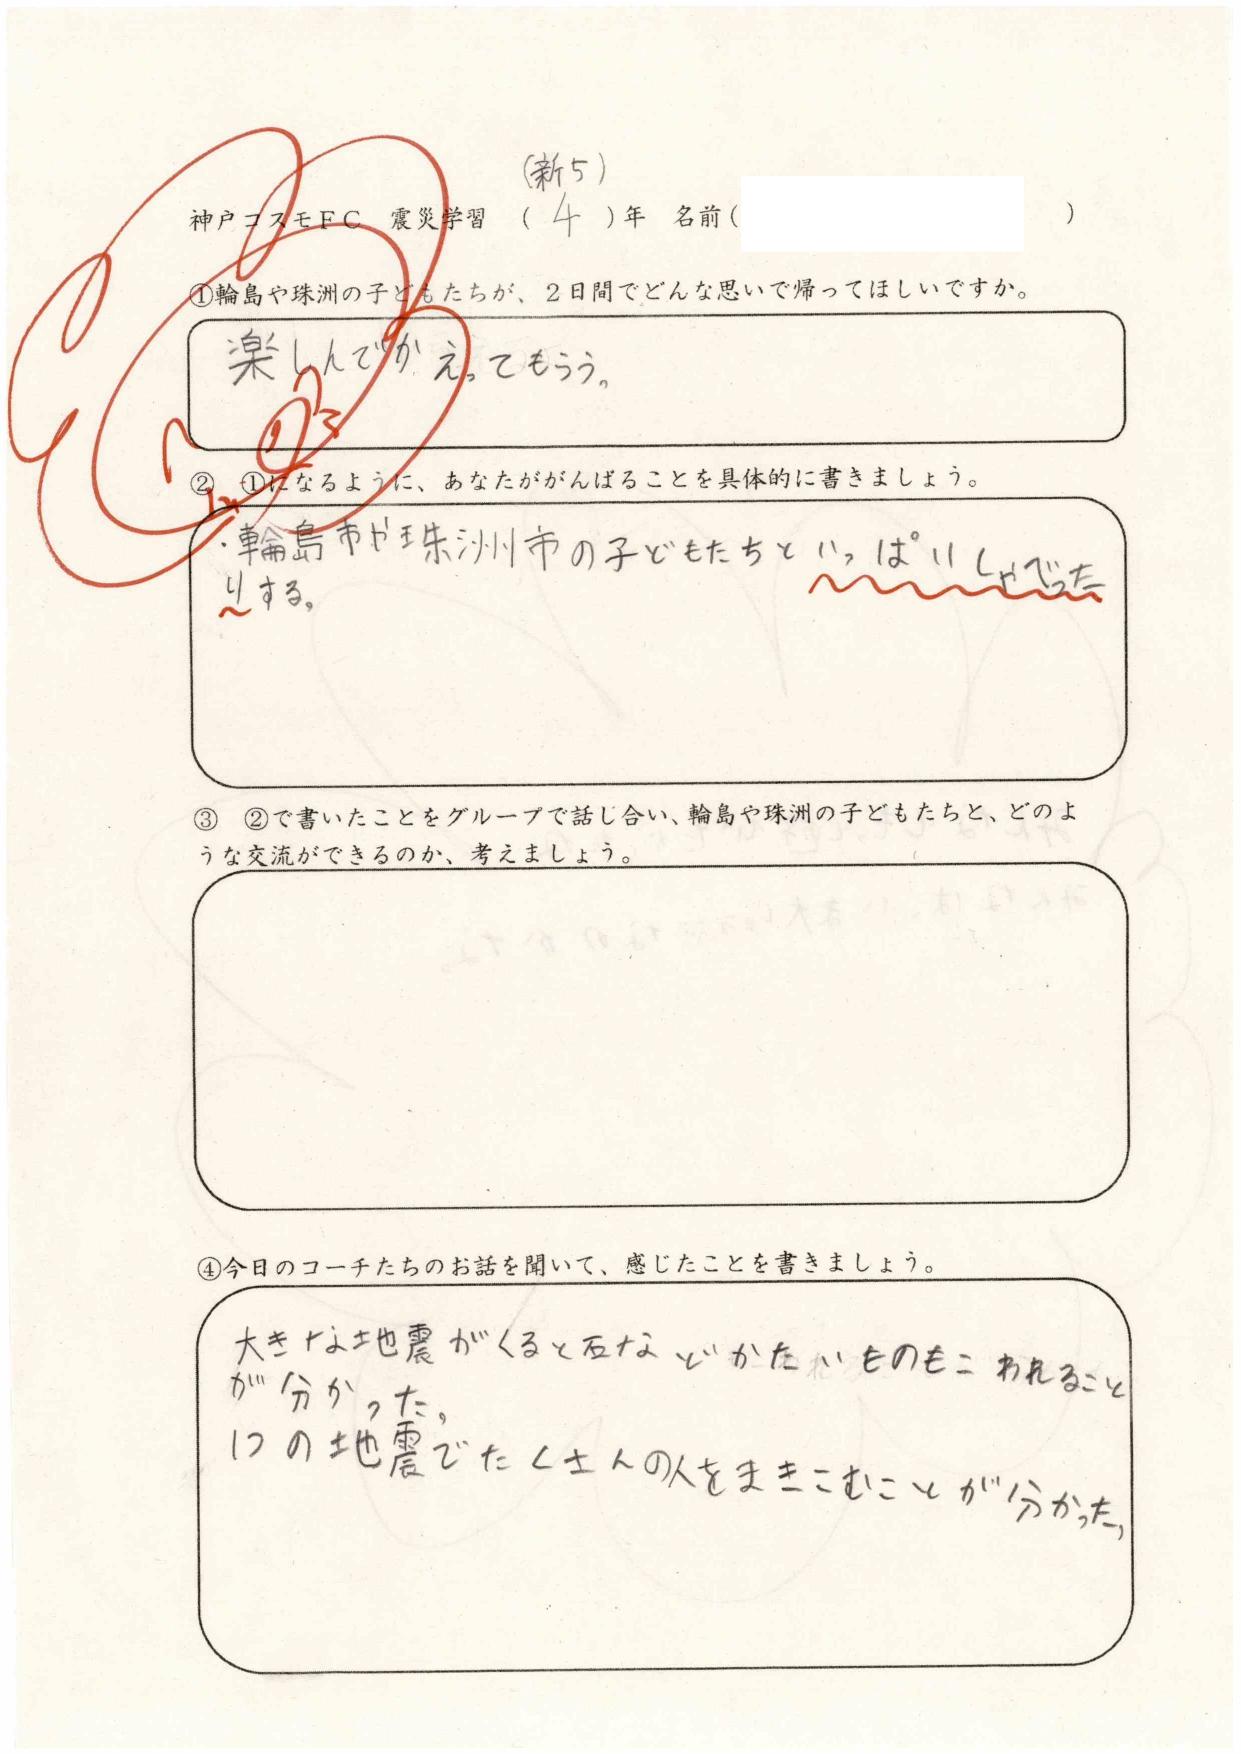 (新5)
神戸コスモFC 震災学習 ( 4 )年 名前( )
①輪島や珠洲の子どもたちが、2日間でどんな思いで帰ってほしいですか。
楽しんでかえってもらう。
② ①になるように、あなたががんばることを具体的に書きましょう。
・輪島市や珠洲市の子どもたちといっぱいしゃべった
りする。
③ ②で書いたことをグループで話し合い、輪島や珠洲の子どもたちと、どのよ
うな交流ができるのか、考えましょう。
④今日のコーチたちのお話を聞いて、感じたことを書きましょう。
大きな地震がくると石などかたいものもこわれること
が分かった。
1つの地震でたくさんの人をまきこむことが分かった。